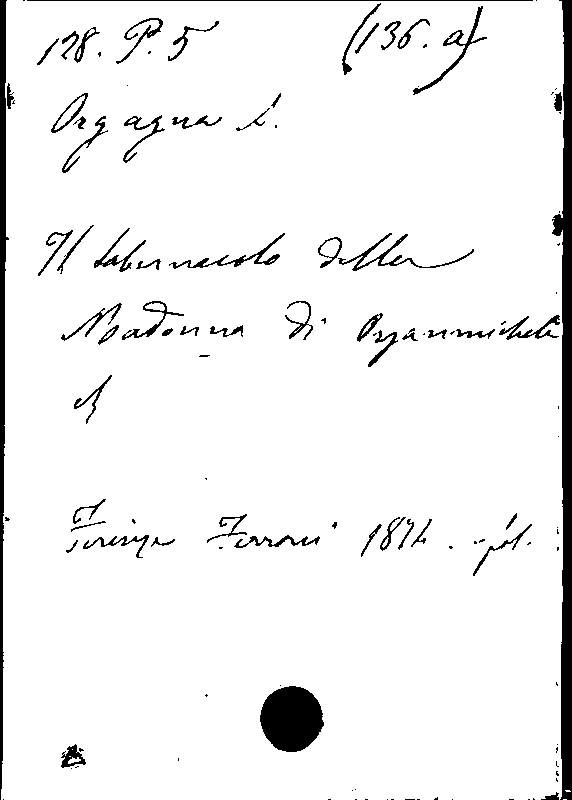 128. P. 5 (136. a)
Orgagna A.
Il tabernacolo della
Madonna di Orsanmichele
Firenze Ferroni 1874. fol.